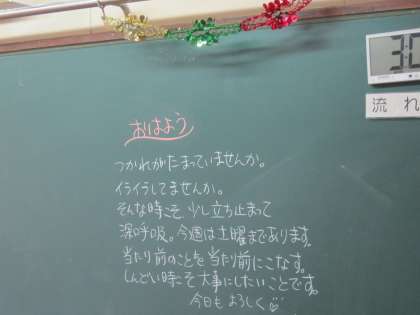 おはよう
つかれがたまっていませんか。
イライラしてませんか。
そんな時こそ、少し立ち止まって
深呼吸。今週は土曜まであります。
当たり前のことを当たり前にこなす。
しんどい時こそ大事にしたいことです。
今日もよろしく
30
流れ